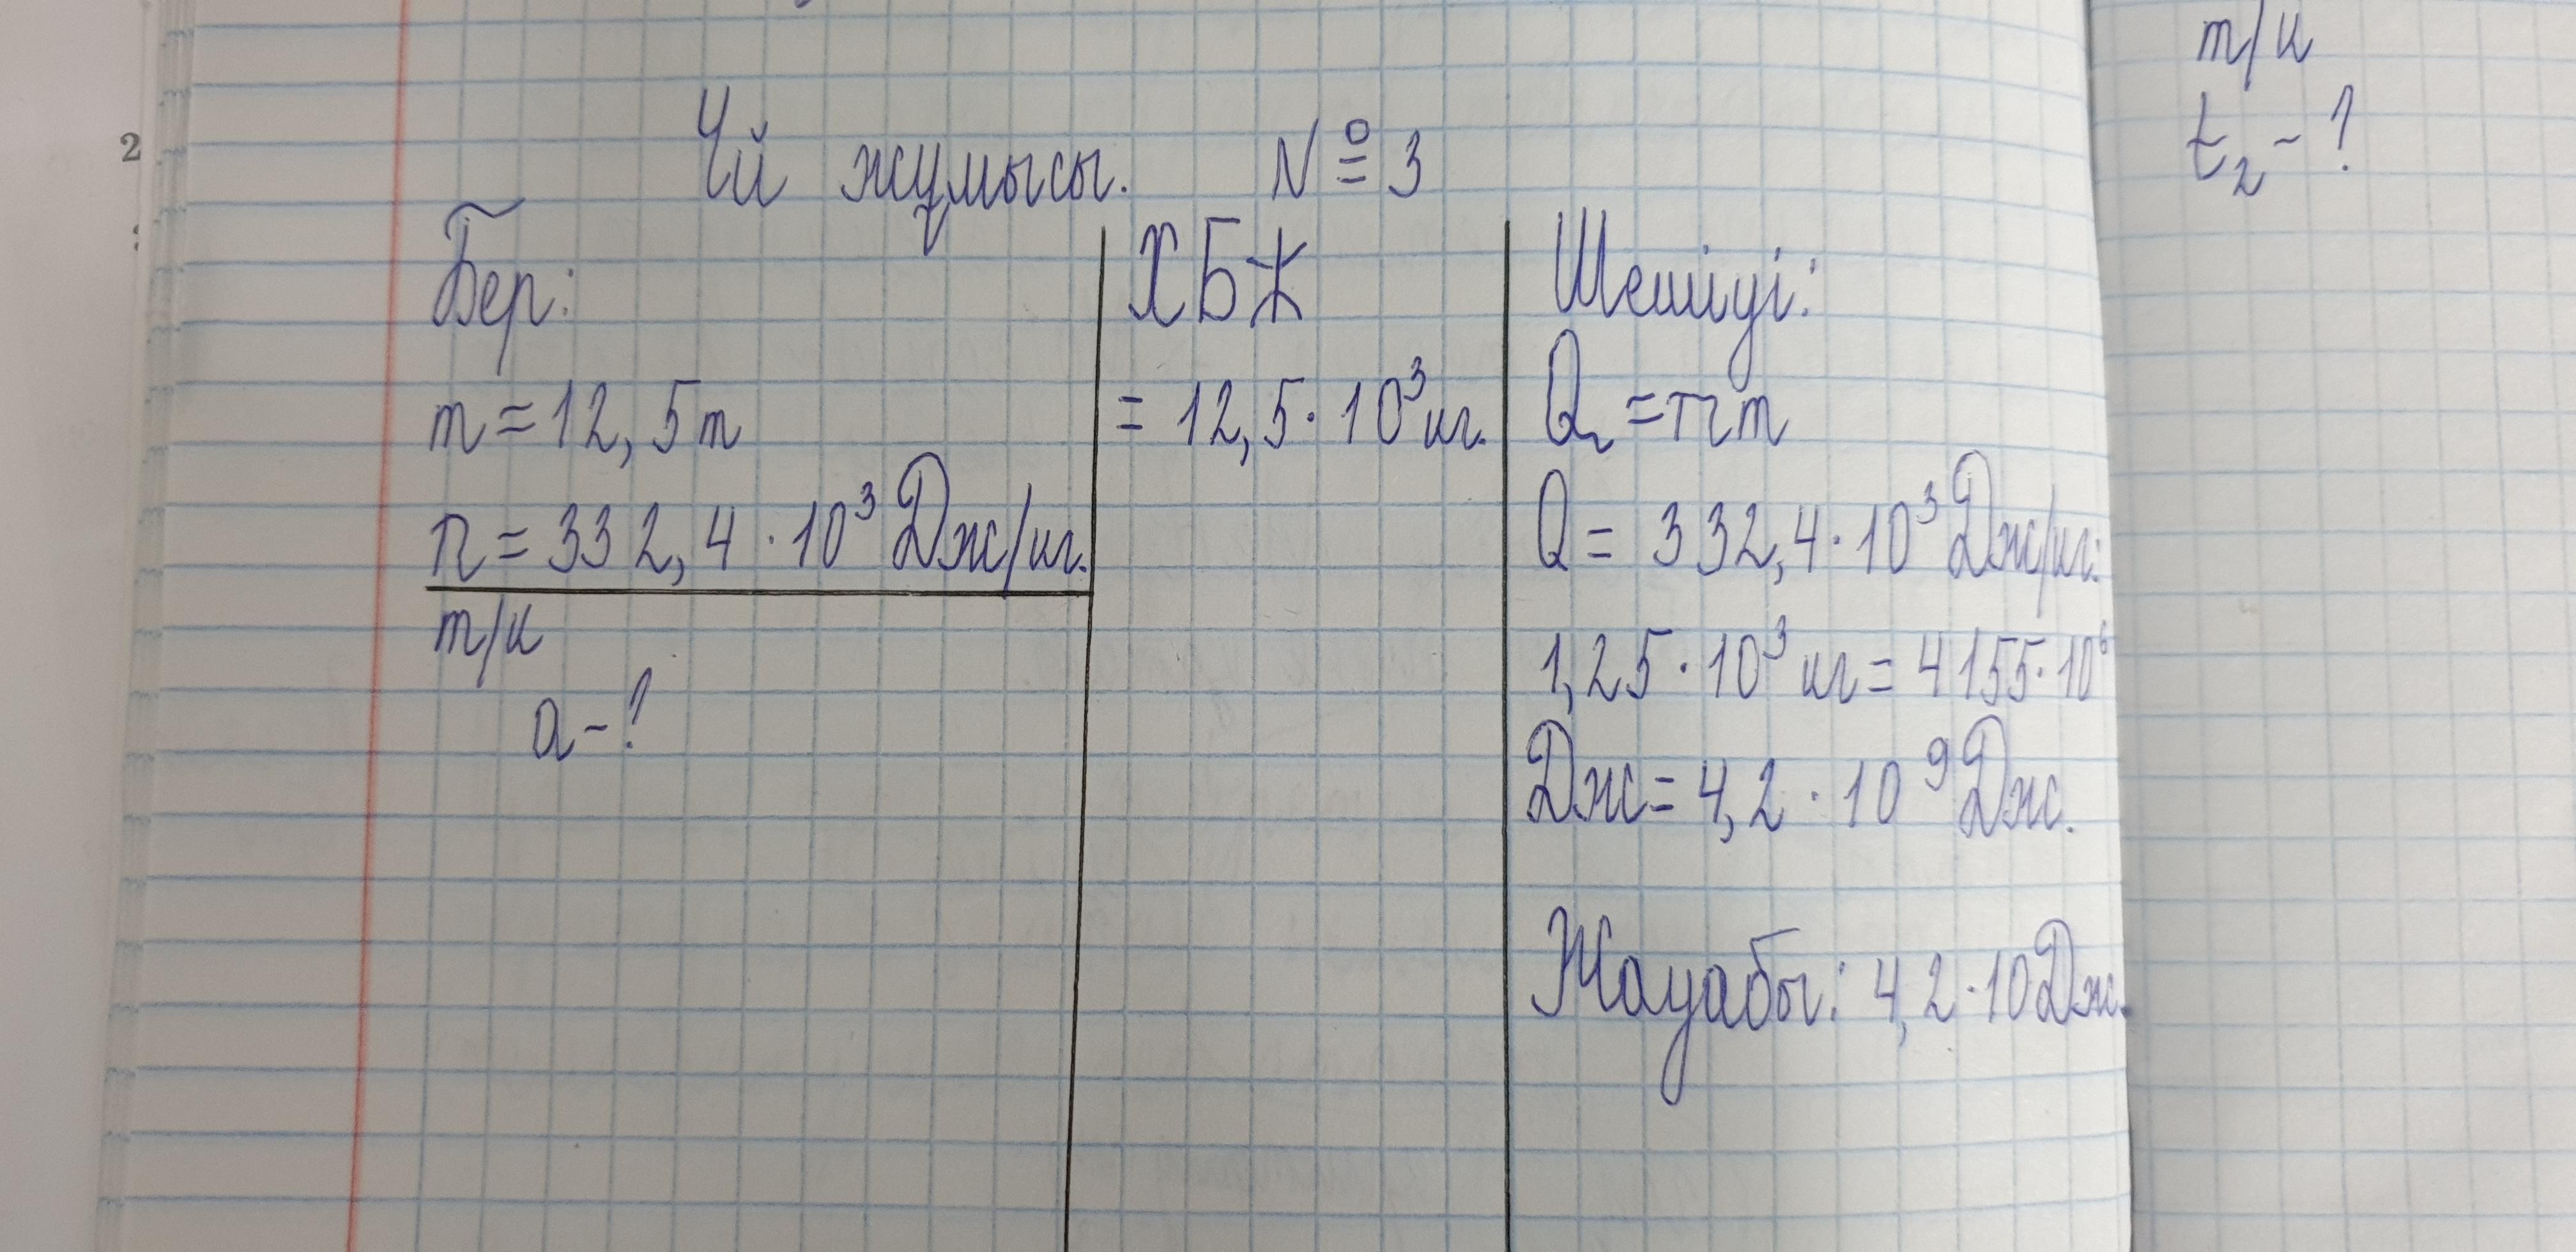 Үй жұмысы. № 3
Бер:
m = 12,5 т
r = 332,4 · 10³ Дж/кг.
т/к
Q - ?
ХБЖ
= 12,5 · 10³ кг.
Шешуі:
Q = rm
Q = 332,4 · 10³ Дж/кг·
1,25 · 10³ кг = 4155 · 10⁶
Дж = 4,2 · 10⁹ Дж.
Жауабы: 4,2 · 10 Дж.
т/к
t₂ - ?
2